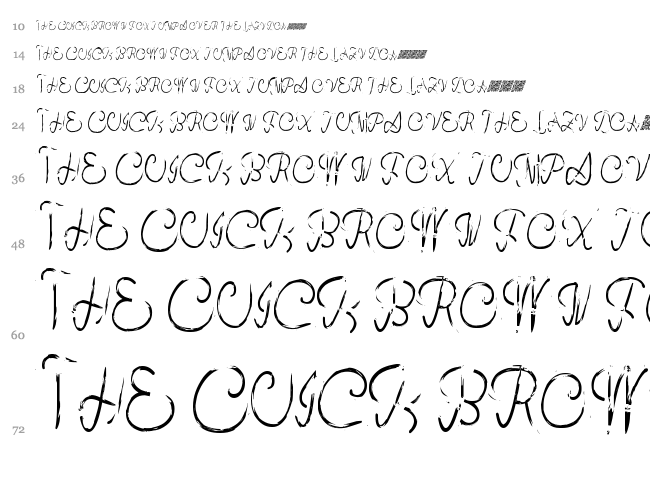 10 THE QUICK BROWN FOX JUMPS OVER THE LAZY DOG
14 THE QUICK BROWN FOX JUMPS OVER THE LAZY DOG
18 THE QUICK BROWN FOX JUMPS OVER THE LAZY DOG
24 THE QUICK BROWN FOX JUMPS OVER THE LAZY DOG
36 THE QUICK BROWN FOX JUMPS OV
48 THE QUICK BROWN FOX JU
60 THE QUICK BROWN FO
72 THE QUICK BROW